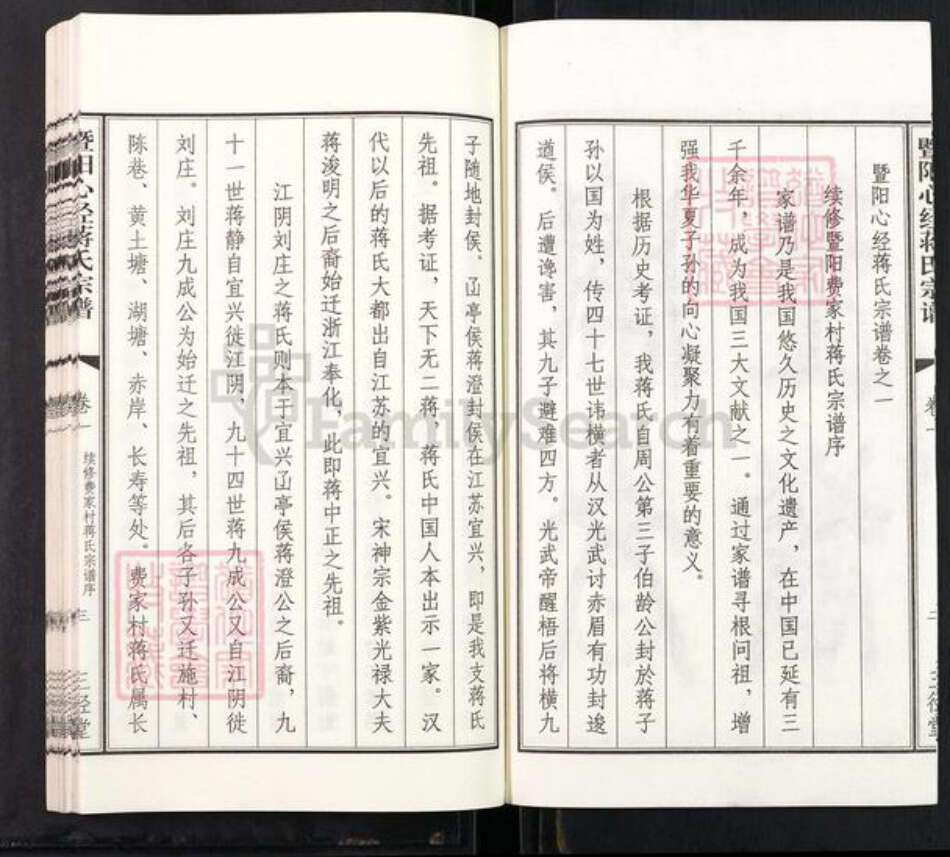 暨阳心经蒋氏宗谱卷之一
续修暨阳费家村蒋氏宗谱序
家谱乃是我国悠久历史之文化遗产，在中国已延有三
千余年，成为我国三大文献之一。通过家谱寻根问祖，增
强我华夏子孙的向心凝聚力有着重要的意义。
根据历史考证，我蒋氏自周公第三子伯龄公封於蒋子
孙以国为姓，传四十七世讳横者从汉光武讨赤眉有功封逡
道侯。后遭谗害，其九子避难四方。光武帝醒梧后将横九
子随地封侯。㓰亭侯蒋澄封侯在江苏宜兴，即是我支蒋氏
先祖。据考证，天下无二蒋，蒋氏中国人本出示一家。汉
代以后的蒋氏大都出自江苏的宜兴。宋神宗金紫光禄大夫
蒋浚明之后裔始迁浙江奉化，此即蒋中正之先祖。
江阴刘庄之蒋氏则本于宜兴函亭侯蒋澄公之后裔，九
十一世蒋静自宜兴徙江阴，九十四世蒋九成公又自江阴徙
刘庄。刘庄九成公为始迁之先祖，其后各子孙又迁施村、
陈巷、黄土塘、湖塘、赤岸、长寿等处。费家村蒋氏属长
暨阳心经蒋氏宗谱
卷一
续修费家村蒋氏宗谱序
三
三径堂
FamilySearch